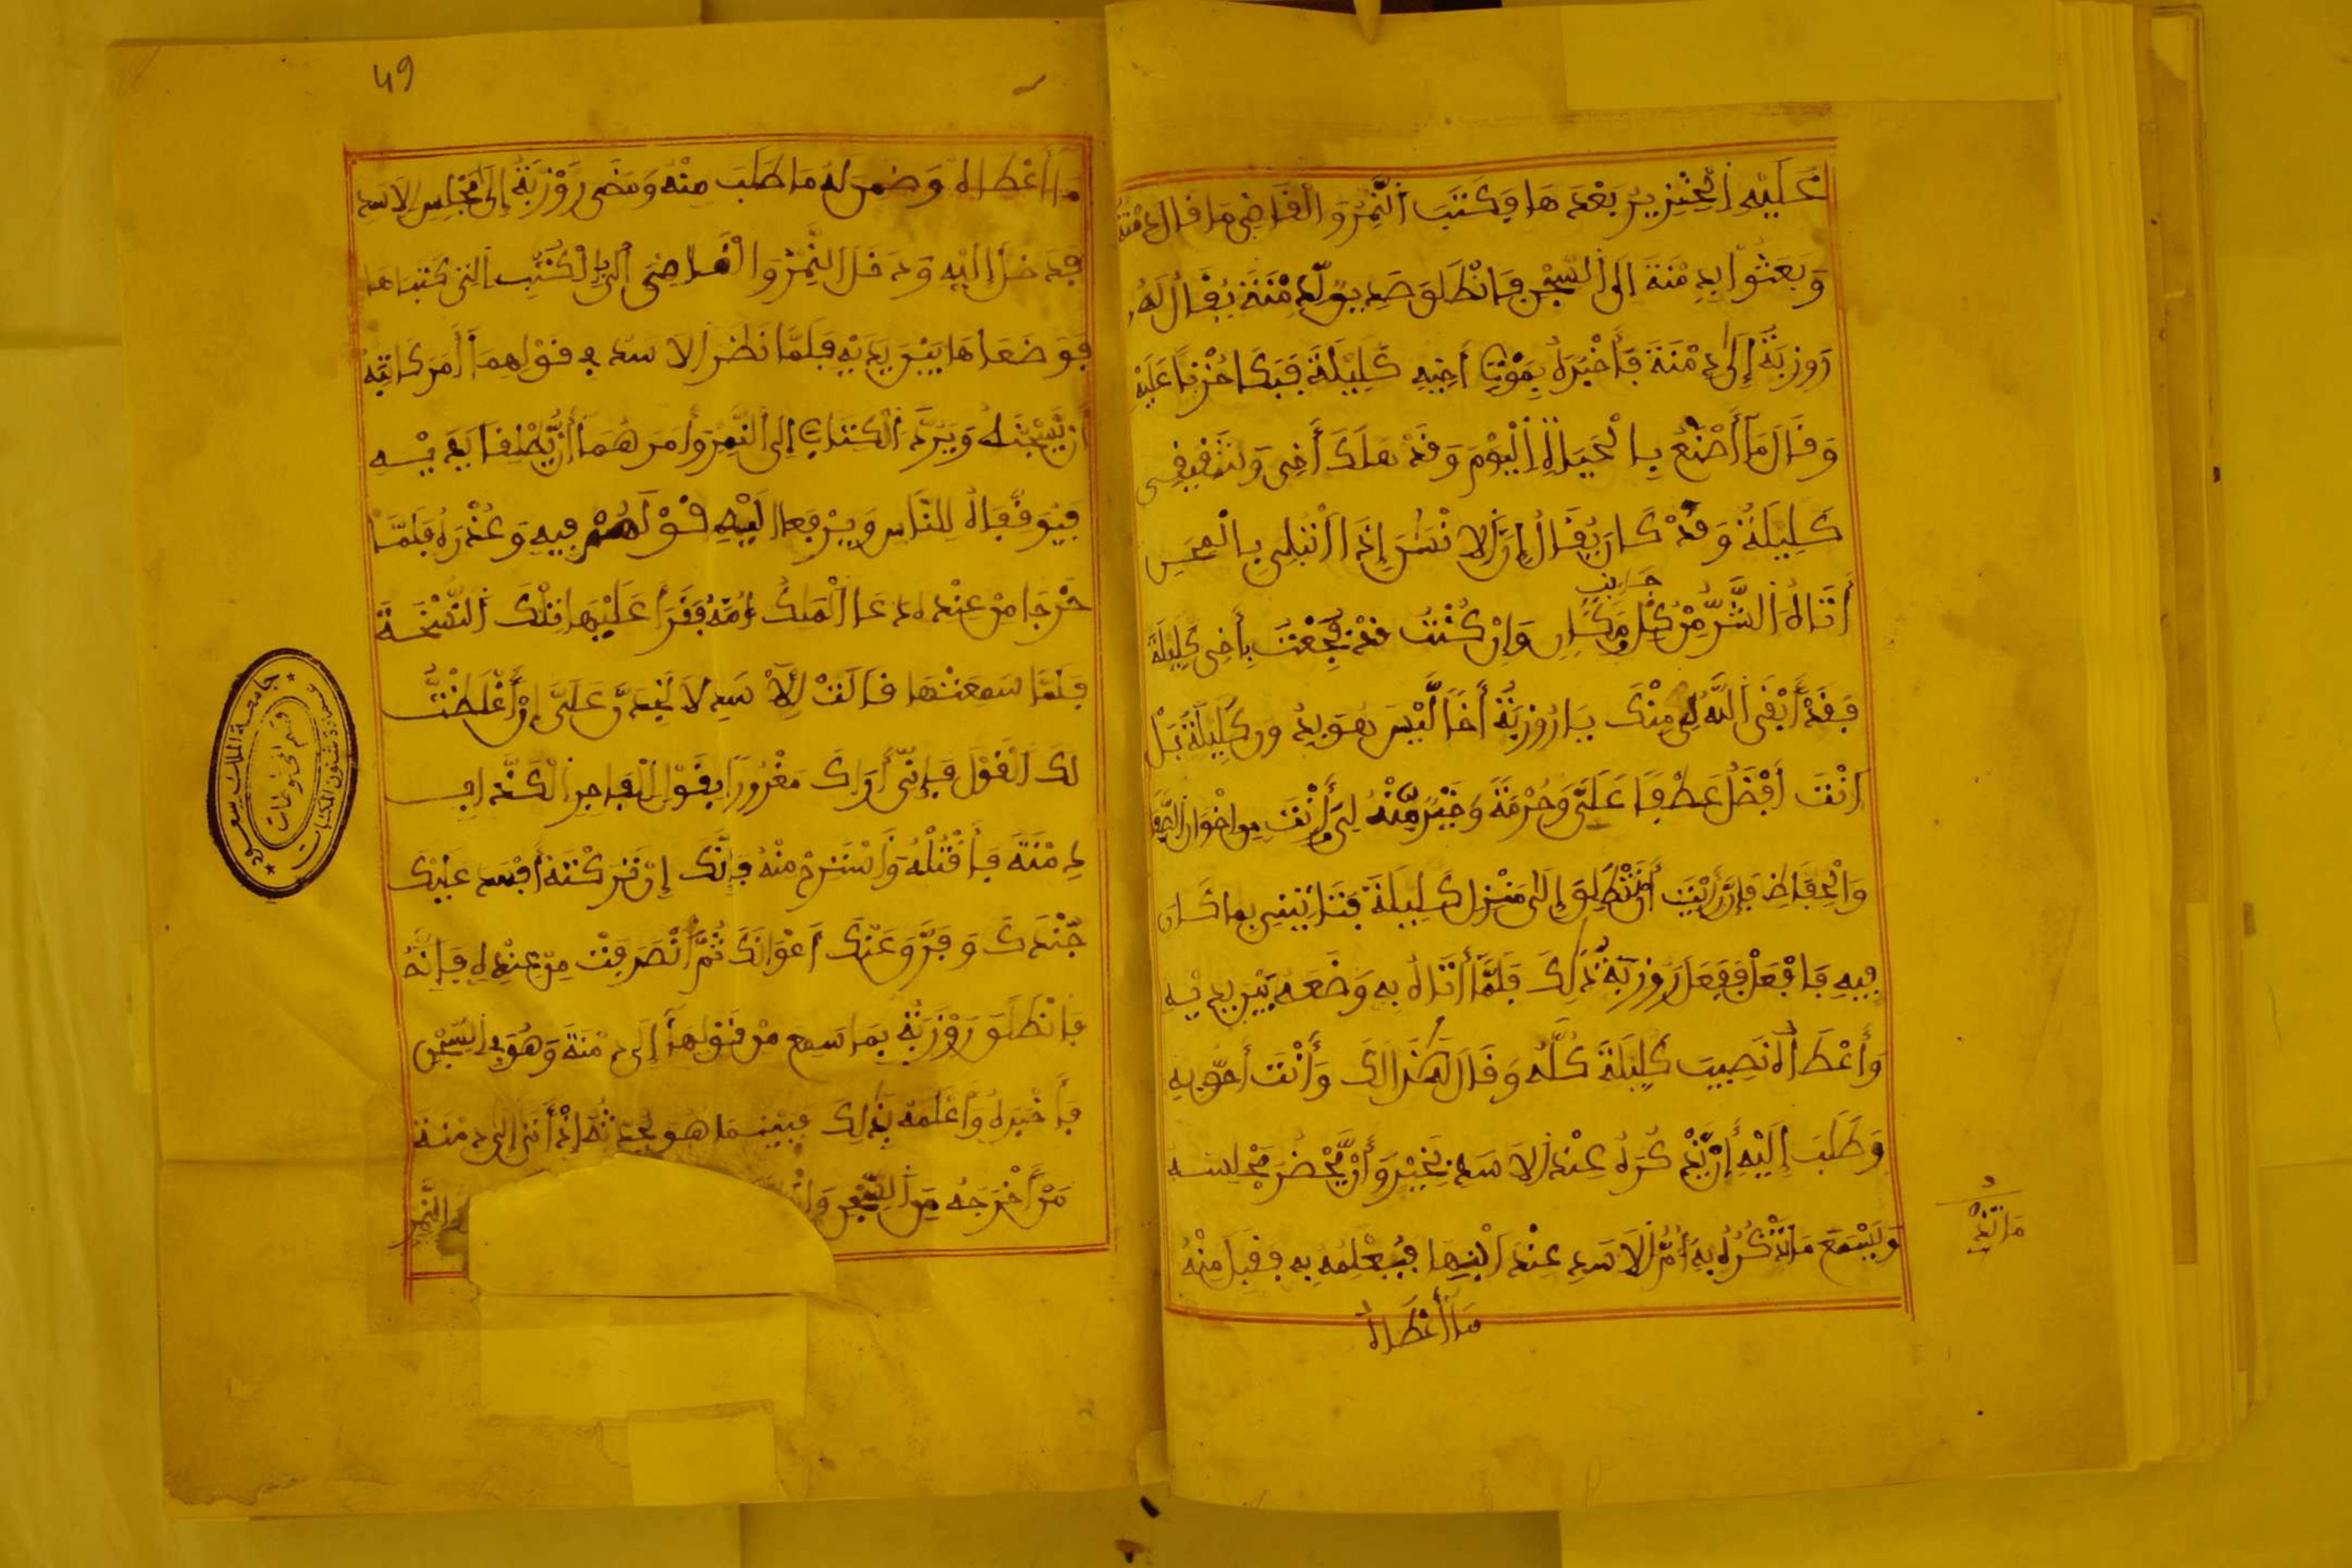 عَلَيْهِ الْخِنْزِيرُ بَعْدَهَا وَكَتَبَ النَّمِرُ وَالْقَاضِي مَا قَالَ دِمْنَةُ
وَبَعَثُوا بِدِمْنَةَ إِلَى السِّجْنِ فَانْطَلَقَ صَدِيقٌ لِدِمْنَةَ يُقَالُ لَهُ
رَوزبَةُ إِلَى دِمْنَةَ فَأَخْبَرَهُ بِمَوْتِ أَخِيهِ كَلِيلَةَ فَبَكَا حُزْنًا عَلَيْهِ
وَقَالَ مَا أَصْنَعُ بِالْحَيَاةِ الْيَوْمَ وَقَدْ هَلَكَ أَخِي وَشَقِيقِي
كَلِيلَةُ وَقَدْ كَانَ يُقَالُ إِنَّ الْإِنْسَانَ إِذَا ابْتُلِيَ بِالْمِحَنِ
جَانِبٍ
أَتَاهُ الشَّرُّ مِنْ كُلِّ مَكَانٍ وَإِنْ كُنْتُ قَدْ فُجِعْتُ بِأَخِي كَلِيلَةَ
فَقَدْ أَبْقَى اللَّهُ لِي مِنْكَ يَا رُوزبَةُ أَخًا لَيْسَ هُوَ بِدُونِ كَلِيلَةَ بَلْ
أَنْتَ أَفْضَلُ عَطْفًا عَلَيَّ وَحُرْمَةً وَخَيْرٌ مِنْهُ لِي أَنْتَ مِن إِخْوَانِ الصَّفَا
وَالْحِفَاظِ فَإِنْ رَأَيْتَ أَنْ تَنْطَلِقَ إِلَى مَنْزِلِ كَلِيلَةَ فَتَأْتِيَنِي بِمَا كَانَ
فِيهِ فَافْعَلْ فَفَعَلَ رَوزبَةُ ذَلِكَ فَلَمَّا أَتَاهُ بِهِ وَضَعَهُ بَيْنَ يَدَيْهِ
وَأَعْطَاهُ نَصِيبَ كَلِيلَةَ كُلَّهُ وَقَالَ هَذَا لَكَ وَأَنْتَ أَحَقُّ بِهِ
وَطَلَبَ إِلَيْهِ أَنْ يَذْكُرَهُ عِنْدَ الْأَسَدِ بِخَيْرٍ وَأَنْ يَحْضُرَ مَجْلِسَهُ
وَيَسْمَعَ مَا تَذْكُرُهُ بِهِ أُمُّ الْأَسَدِ عِنْدَ ابْنِهَا فَيُعْلِمَهُ بِهِ فَقَبِلَ مِنْهُ
مَا أَعْطَاهُ
49
مَا أَعْطَاهُ وَضَمِنَ لَهُ مَا طَلَبَ مِنْهُ وَمَضَى رَوْزبَةُ إِلَى مَجْلِسِ الْأَسَدِ
فَدَخَلَ إِلَيْهِ وَدَخَلَ النَّمِرُ وَالْقَاضِي بِالْكُتُبِ الَّتِي كَتَبَاهَا
فَوَضَعَاهَا بَيْنَ يَدَيْهِ فَلَمَّا نَظَرَ الْأَسَدُ فِي قَوْلِهِمَا أَمَرَ كَاتِبَهُ
أَنْ يَنْسَخَهُ وَيَرُدَّ الْكِتَابَ إِلَى النَّمِرِ وَأَمَرَهُمَا أَنْ يَنْطَلِقَا بِدِمْنَةَ
فَيُوقِفَاهُ لِلنَّاسِ وَيَرْفَعَا إِلَيْهِ قَوْلَهُمْ فِيهِ وَعُذْرَهُ فَلَمَّا
خَرَجَا مِنْ عِنْدِهِ دَعَا الْمَلِكُ أُمَّهُ فَقَرَأَ عَلَيْهَا تِلْكَ النُّسْخَةَ
فَلَمَّا سَمِعَتْهَا قَالَتْ لِلْأَسَدِ لَا تَجِدْ عَلَيَّ إِنْ أَغْلَظْتُ
لَكَ الْقَوْلَ فَإِنِّي أَرَاكَ مَغْرُورًا بِقَوْلِ الْفَاجِرِ الْكَذَّابِ
دِمْنَةَ فَأَقْتُلْهُ وَاسْتَرِحْ مِنْهُ فَإِنَّكَ إِنْ تَرَكْتَهُ أَفْسَدَ عَلَيْكَ
جُنْدَكَ وَفَرَّقَ عَنْكَ أَعْوَانَكَ ثُمَّ انْصَرَفَتْ مِنْ عِنْدِهِ فَإِنَّهُ
فَانْطَلَقَ رَوْزَبَةُ بِمَا سَمِعَ مِنْ قَوْلِهَا إِلَى دِمْنَةَ وَهُوَ فِي السِّجْنِ
فَأَخْبَرَهُ وَأَعْلَمَهُ بِذَلِكَ فَبَيْنَمَا هُوَ يُحَدِّثُهُ إِذْ أَتَى إِلَى دِمْنَةَ
مَنْ أَخْرَجَهُ مِنَ السِّجْنِ النَّمِرِ
جامعة الملك سعود
عمادة شئون المكتبات
قسم المخطوطات